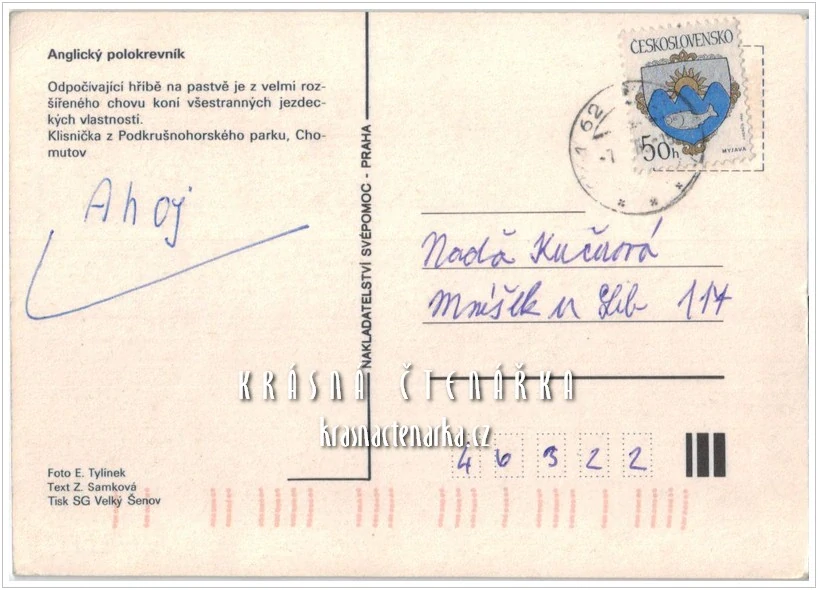 Anglický polokrevník
Odpočívající hříbě na pastvě je z velmi roz-
šířeného chovu koní všestranných jezdec-
kých vlastností.
Klisnička z Podkrušnohorského parku, Cho-
mutov
Ahoj
Foto E. Tylínek
Text Z. Samková
Tisk SG Velký Šenov
NAKLADATELSTVÍ SVÉPOMOC - PRAHA
ČESKOSLOVENSKO
50h
MYJAVA
62
Naďa Kučerová
Mníšek u Lib 114
46322
KRÁSNÁ ČTENÁŘKA
krasnactenarka.cz